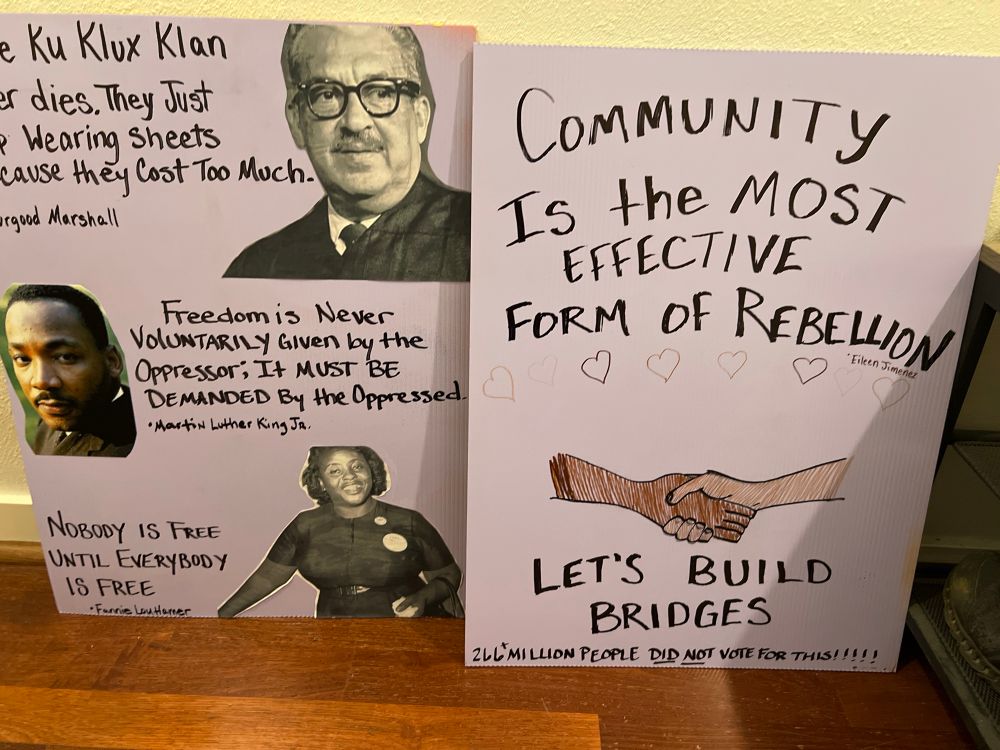 e Ku Klux Klan
er dies. They Just
p Wearing Sheets
cause they Cost Too Much.
urgood Marshall
Freedom is Never
VOLUNTARILY Given by the
Oppressor; It MUST BE
DEMANDED By the Oppressed.
• Martin Luther King Jr.
NOBODY IS FREE
UNTIL EVERYBODY
IS FREE
• Fannie Lou Hamer
COMMUNITY
Is the MOST
EFFECTIVE
FORM OF REBELLION
• Eileen Jimenez
LET'S BUILD
BRIDGES
266+ MILLION PEOPLE DID NOT VOTE FOR THIS!!!!!